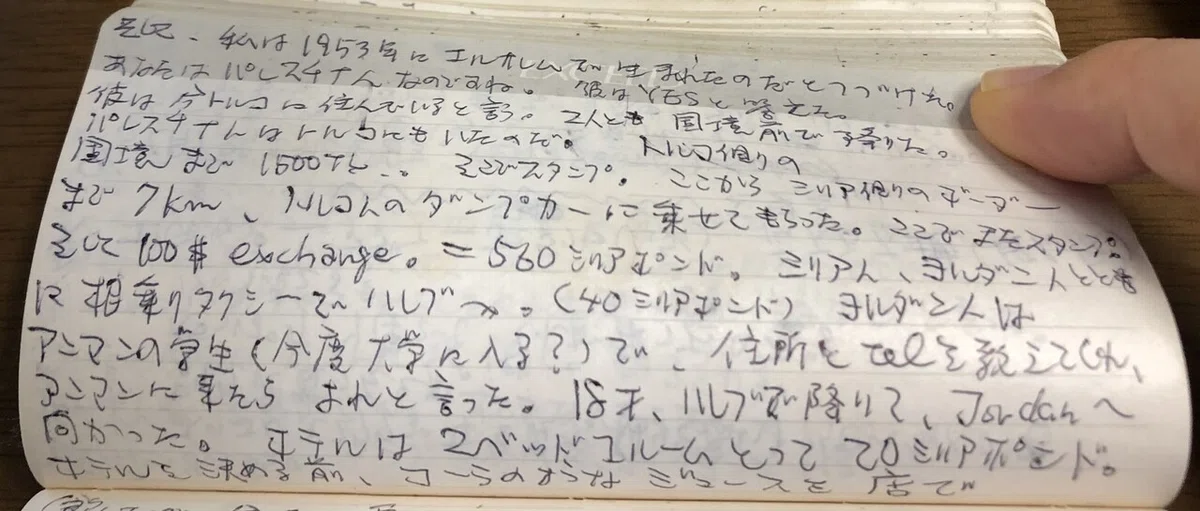 そして、私は1953年にエルサレムで生まれたのだとつづけた。
あなたはパレスチナ人なのですね。 彼はYESと答えた。
彼は今トルコに住んでいると言う。2人とも 国境前で降りた。
パレスチナ人はトルコにもいたのだ。 トルコ側の
国境まで 1500TL… そこでスタンプ。 ここから シリア側のボーダー
まで 7km、トルコ人のダンプカーに乗せてもらった。ここでまたスタンプ。
そして 100$ exchange。=560シリアポンド。 シリア人、ヨルダン人ととも
に相乗りタクシーでハレブへ。(40シリアポンド) ヨルダン人は
アンマンの学生(今度大学に入る?)で、住所とtelを教えてくれ、
アンマンに来たら よれと言った。18才、ハレブで降りて、Jordanへ
向かった。 ホテルは 2ベッド1ルームとって 70シリアポンド。
ホテルを決める前、コーラの ジュースを 店で